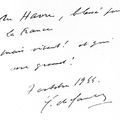 Au Havre, blessé par
la France
mais vivant! et qui
sera grand!
7 octobre 1944.
C. de Gaulle